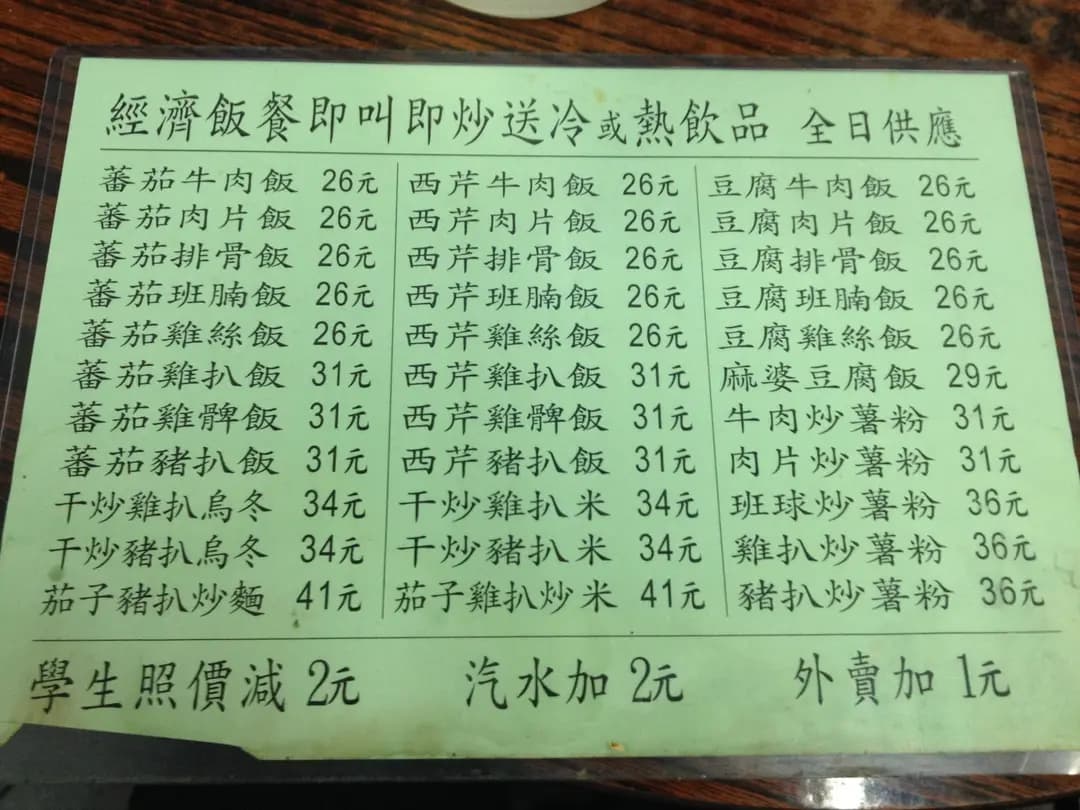 經濟飯餐即叫即炒送冷或熱飲品 全日供應
蕃茄牛肉飯 26元
蕃茄肉片飯 26元
蕃茄排骨飯 26元
蕃茄班腩飯 26元
蕃茄雞絲飯 26元
蕃茄雞扒飯 31元
蕃茄雞髀飯 31元
蕃茄豬扒飯 31元
干炒雞扒烏冬 34元
干炒豬扒烏冬 34元
茄子豬扒炒麵 41元
西芹牛肉飯 26元
西芹肉片飯 26元
西芹排骨飯 26元
西芹班腩飯 26元
西芹雞絲飯 26元
西芹雞扒飯 31元
西芹雞髀飯 31元
西芹豬扒飯 31元
干炒雞扒米 34元
干炒豬扒米 34元
茄子雞扒炒米 41元
豆腐牛肉飯 26元
豆腐肉片飯 26元
豆腐排骨飯 26元
豆腐班腩飯 26元
豆腐雞絲飯 26元
麻婆豆腐飯 29元
牛肉炒薯粉 31元
肉片炒薯粉 31元
班球炒薯粉 36元
雞扒炒薯粉 36元
豬扒炒薯粉 36元
學生照價減 2元 汽水加 2元 外賣加 1元